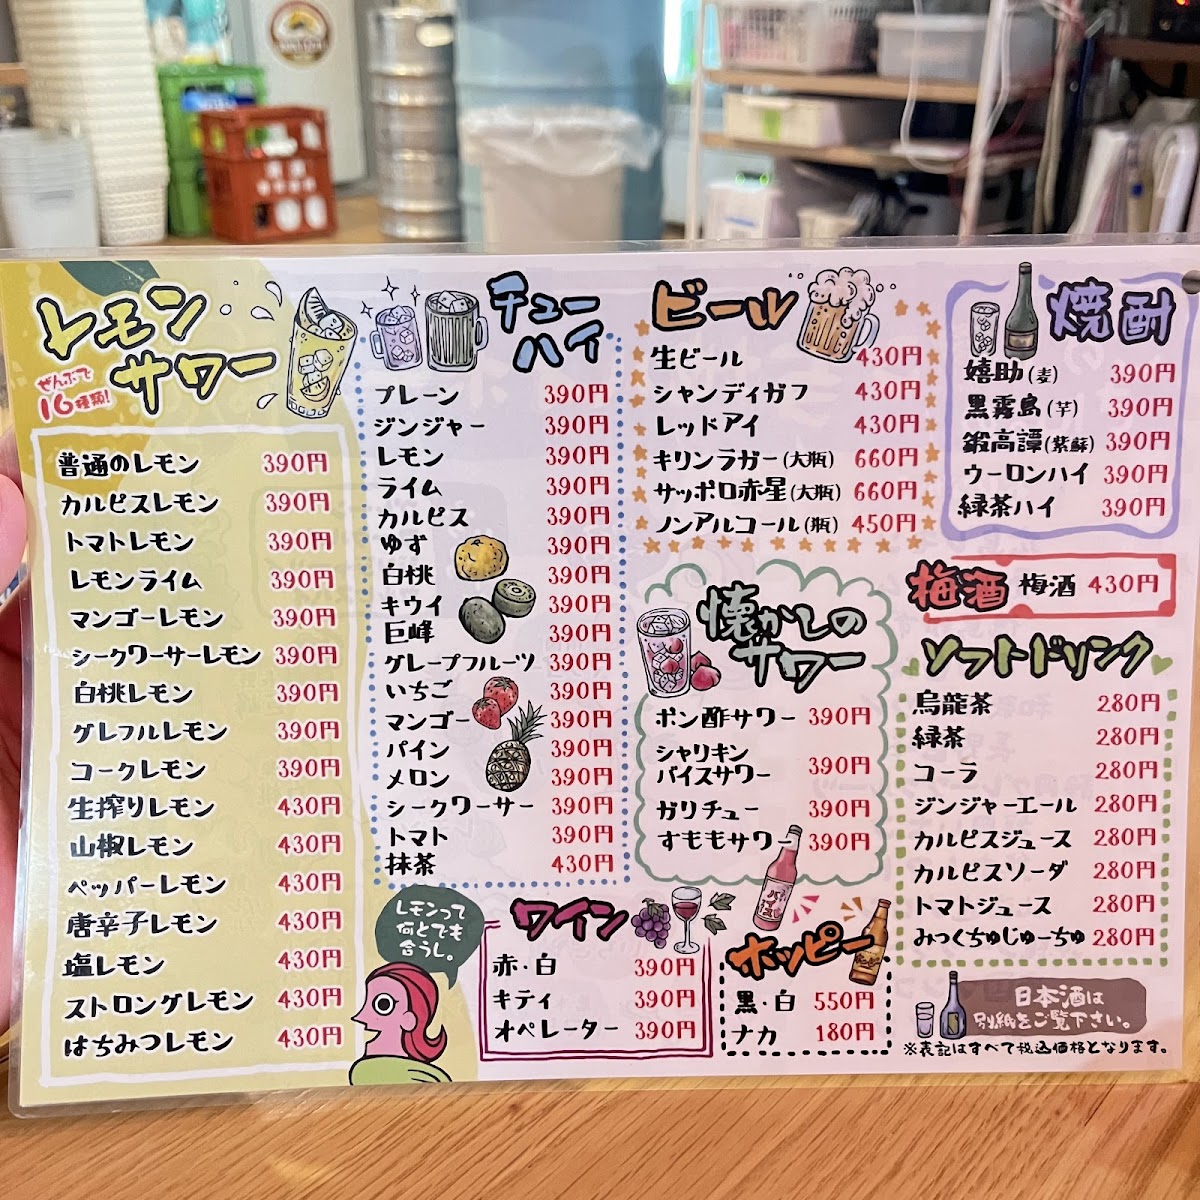 レモン
サワー
ぜんぶで
16種類!
普通のレモン 390円
カルピスレモン 390円
トマトレモン 390円
レモンライム 390円
マンゴーレモン 390円
シークワーサーレモン 390円
白桃レモン 390円
グレフルレモン 390円
コークレモン 390円
生搾りレモン 430円
山椒レモン 430円
ペッパーレモン 430円
唐辛子レモン 430円
塩レモン 430円
ストロングレモン 430円
はちみつレモン 430円
チュー
ハイ
プレーン 390円
ジンジャー 390円
レモン 390円
ライム 390円
カルピス 390円
ゆず 390円
白桃 390円
キウイ 390円
巨峰 390円
グレープフルーツ 390円
いちご 390円
マンゴー 390円
パイン 390円
メロン 390円
シークワーサー 390円
トマト 390円
抹茶 430円
レモンって
何とでも
合うし。
ビール
生ビール 430円
シャンディガフ 430円
レッドアイ 430円
キリンラガー(大瓶) 660円
サッポロ赤星(大瓶) 660円
ノンアルコール(瓶) 450円
懐かしの
サワー
ポン酢サワー 390円
シャリキン
バイスサワー 390円
ガリチュー 390円
すももサワー 390円
ワイン
赤・白 390円
キティ 390円
オペレーター 390円
ホッピー
黒・白 550円
ナカ 180円
焼酎
嬉助(麦) 390円
黒霧島(芋) 390円
鍛高譚(紫蘇) 390円
ウーロンハイ 390円
緑茶ハイ 390円
梅酒 梅酒 430円
ソフトドリンク
烏龍茶 280円
緑茶 280円
コーラ 280円
ジンジャーエール 280円
カルピスジュース 280円
カルピスソーダ 280円
トマトジュース 280円
みっくちゅじゅーちゅ 280円
日本酒は
別紙をご覧下さい。
※表記はすべて税込価格となります。